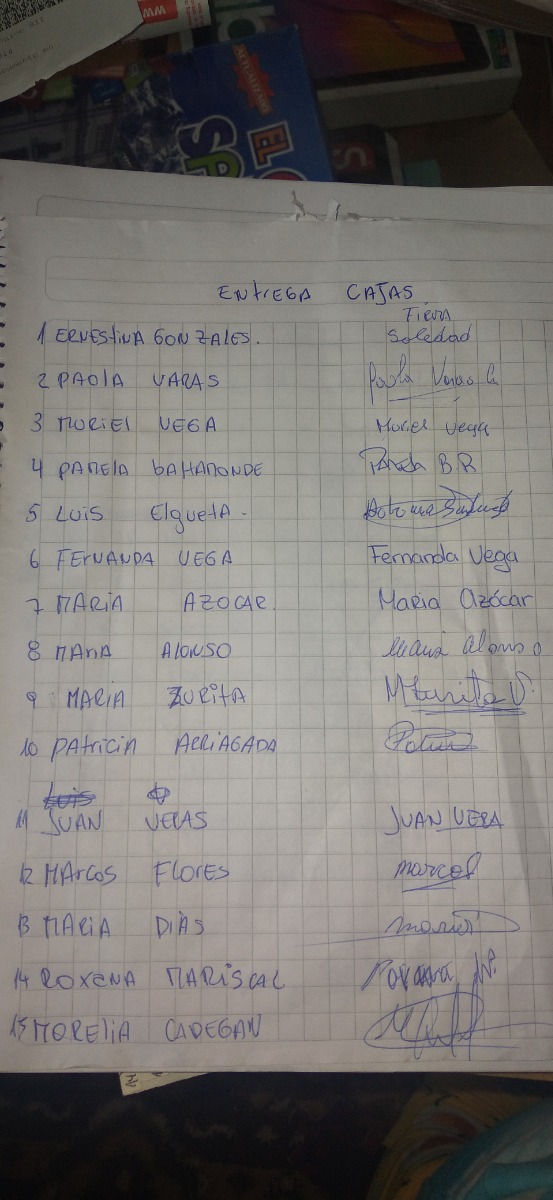 WW
ACTUALIZADO
EL
SA
ENTREGA CAJAS
FIRMA
1 ERNESTINA GONZALES. Soledad
2 PAOLA VARAS Paola Varas C
3 MURIEL VEGA Muriel Vega
4 PAMELA BAHAMONDE Pamela B R
5 LUIS Elgueta.
6 FERNANDA VEGA Fernanda Vega
7 MARIA AZOCAR Maria Azócar
8 MARIA ALONSO Maria Alonso
9 MARIA ZURITA MZurita V.
10 PATRICIA ARRIAGADA
11 JUAN VERAS JUAN VERA
12 MARCOS FLORES marcos
13 MARIA DIAS maria
14 ROXENA MARISCAL Roxana M.
15 MORELIA CADEGAN